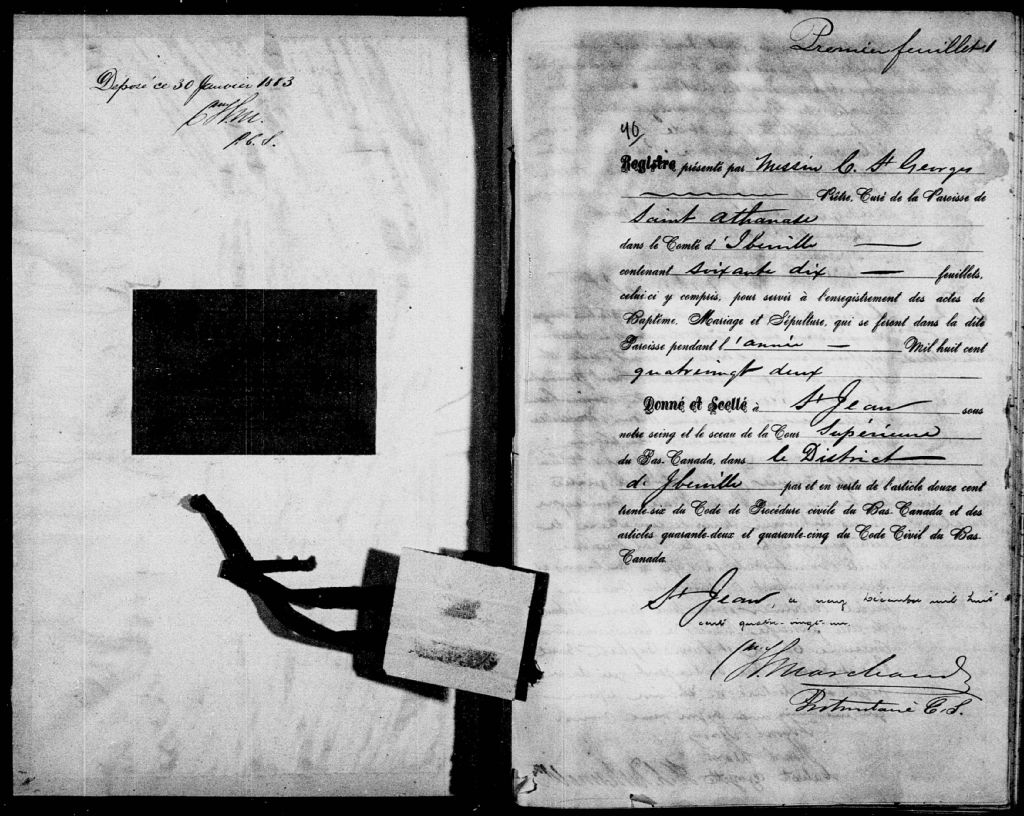 Déposé ce 30 Janvier 1883
P.C.S.
Premier feuillet
Registre présenté par Messire C. St Georges
Prêtre, Curé de la Paroisse de
Saint Athanase
dans le Comté d'Iberville
contenant soixante dix feuillets,
celui-ci y compris, pour servir à l'enregistrement des actes de
Baptême, Mariage et Sépulture, qui se feront dans la dite
Paroisse pendant l'année Mil huit cent
quatrevingt deux
Donné et Scellé à St Jean sous
notre seing et le sceau de la Cour Supérieure
du Bas-Canada, dans le District
d'Iberville par et en vertu de l'article douze cent
trente-six du Code de Procédure civile du Bas-Canada et des
articles quarante-deux et quarante-cinq du Code Civil du Bas-
Canada.
St Jean, ce neuf Décembre mil huit
cent quatre-vingt-un.
Marchand
Protonotaire C.S.